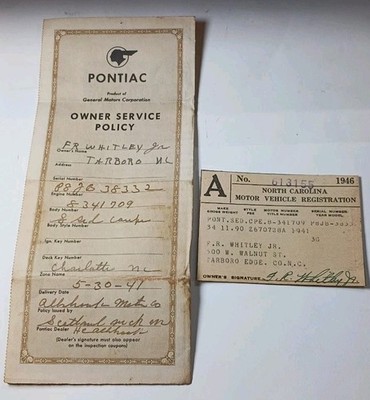 PONTIAC
Product of
General Motors Corporation
OWNER SERVICE
POLICY
F.R. WHITLEY Jr
Owner's Name
TARBORO NC
Address
Serial Number
Engine Number
8 341709
Body Number
8 Sed Coupe
Body Style Number
Ign. Key Number
Deck Key Number
Charlotte NC
Zone Name
5-30-41
Delivery Date
Policy issued by
Scotland Neck NC
Pontiac Dealer
(Dealer's signature must also appear
on the inspection coupons)
A
No. 613155 1946
NORTH CAROLINA
MOTOR VEHICLE REGISTRATION
MAKE STYLE MOTOR NUMBER SERIAL NUMBER
GROSS WEIGHT FEE TITLE NUMBER YEAR MODEL
PONT.SED.CPE.8-341709
34 11.90 1941
30
F.R. WHITLEY JR.
W. WALNUT ST.
TARBORO EDGE. CO.N.C.
OWNER'S SIGNATURE F. R. Whitley Jr.